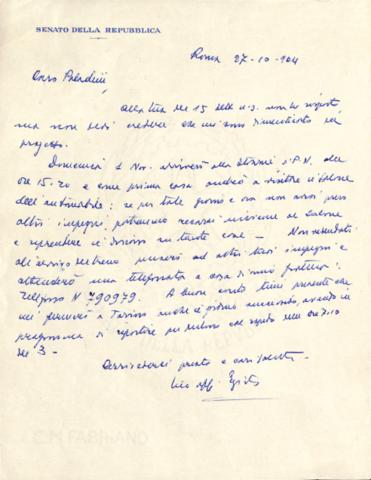 SENATO DELLA REPUBBLICA
Roma 27-10-964
Caro
alla tua del 15 non ho risposto
ma non devi credere che mi sono dimenticato del
progetto.
Domenica 1 Nov. arriverò alla stazione P.N. alle
ore 15.20 e come prima cosa andrò a visitare il salone
dell'automobile: se per tale giorno e ora non avrai presi
altri impegni, potremmo recarci insieme al salone
e riprendere il discorso su tante cose — Non vedendoti
all'arrivo del treno penserò ad altri tuoi impegni e
attenderò una telefonata a casa di mio fratello:
Telefono N° 790979. A buon conto tieni presente che
mi fermerò a Torino anche il giorno successivo, avendo in
programma di ripartire per Roma col rapido delle ore 7.10
del 3 —
Arrivederci presto e
tuo aff.
C.M. FABRIANO